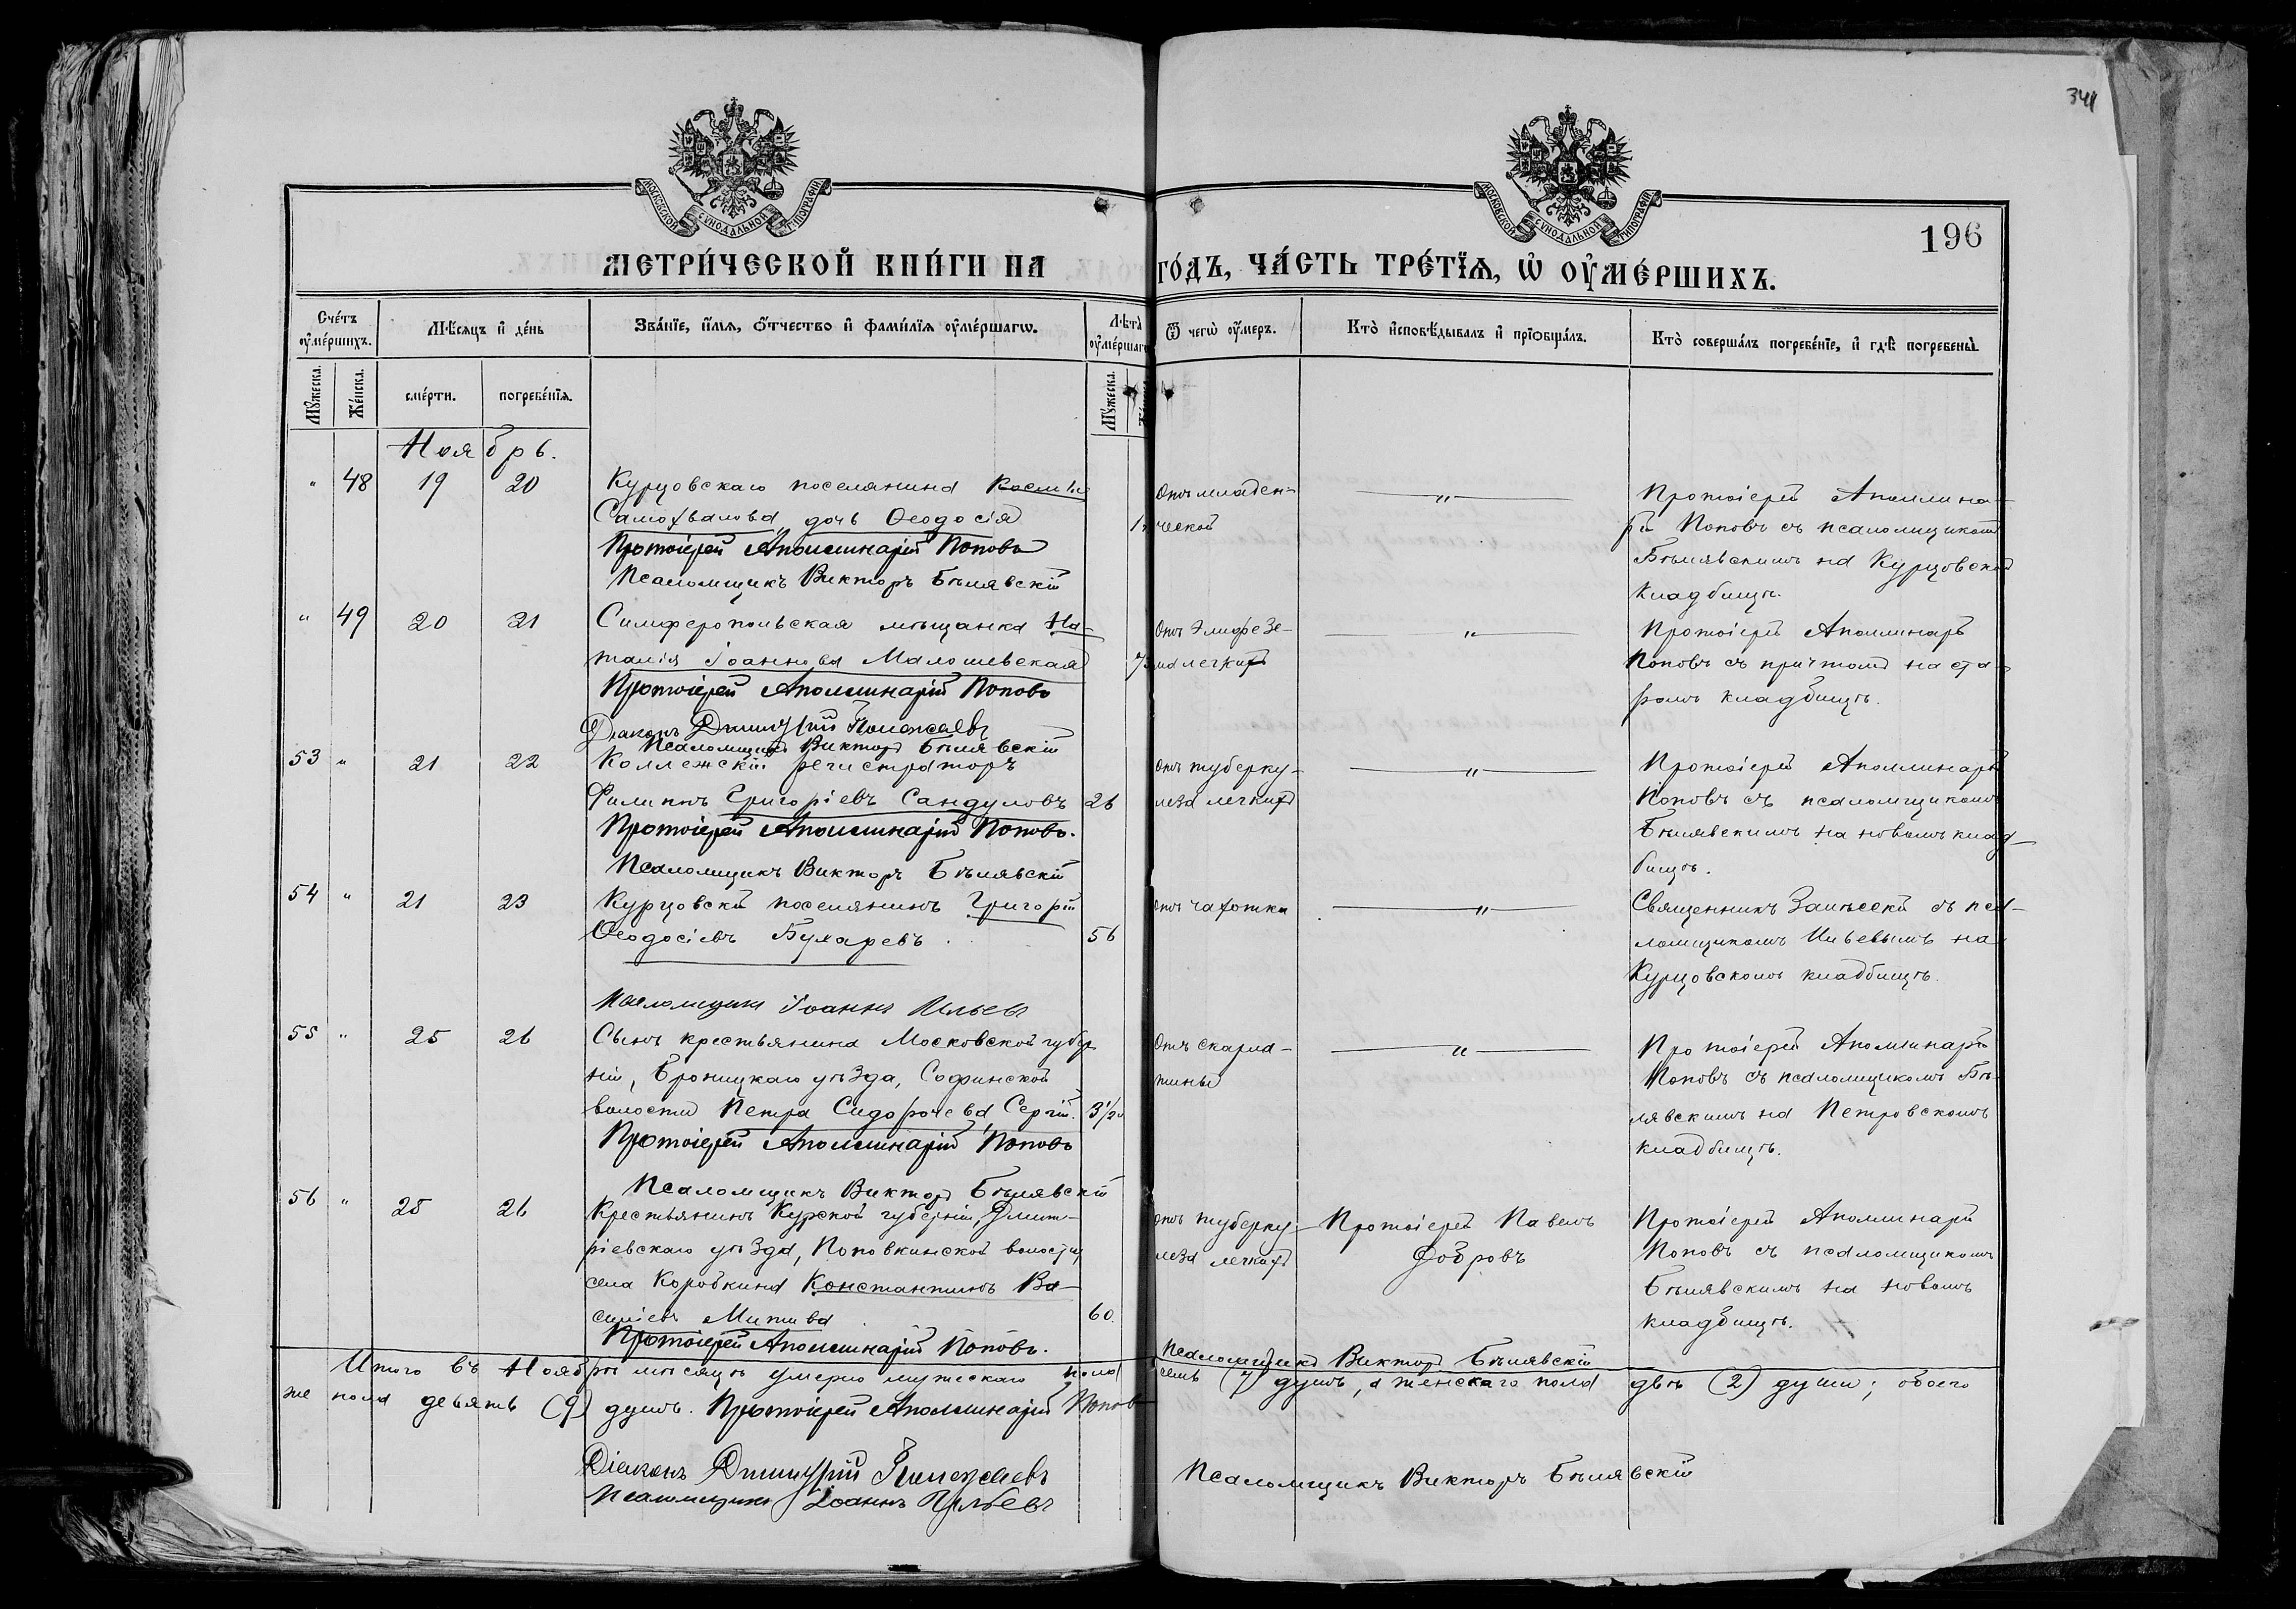 341
МОСКОВСКОЙ СѴНОДАЛЬНОЙ ТИПОГРАФІИ
МОСКОВСКОЙ СѴНОДАЛЬНОЙ ТИПОГРАФІИ
196
МЕТРИ́ЧЕСКОЙ КНИ́ГИ НА ГО́ДЪ, ЧА́СТЬ ТРЕ́ТЇѦ, Ѡ҆ ОУ҆МЕ́РШИХЪ.
Сче́тъ оу҆ме́ршихъ.
Мѣ́сѧцъ и҆ де́нь
Зва́нїе, и҆́мѧ, ѻ҆́тчество и҆ фами́лїѧ оу҆ме́ршагѡ.
Лѣ́та оу҆ме́ршагѡ
Ѿ чегѡ̀ оу҆́меръ.
Кто̀ и҆сповѣ́дывалъ и҆ прїѡбща́лъ.
Кто̀ соверша́лъ погребе́нїе, и҆ гдѣ̀ погребены̀.
Мꙋ́жеска.
Же́нска.
сме́рти.
погребе́нїѧ.
Мꙋ́жеска.
Ноябрь.
" 48 19 20
Курцовскаго поселянина Косьмы
Самохвалова дочь Ѳеодосія
Протоіерей Аполлинарій Поповъ
Псаломщикъ Викторъ Бѣлявскій
Отъ младен-
ческой
"
Протоіерей Аполлина-
рій Поповъ съ псаломщикомъ
Бѣлявскимъ на Курцовскомъ
кладбищѣ.
" 49 20 21
Симферопольская мѣщанка На-
талія Іоаннова Малошевская
Протоіерей Аполлинарій Поповъ
Діаконъ Димитрій Полежаевъ
Псаломщикъ Викторъ Бѣлявскій
Отъ эмфезе-
ма легкихъ
"
Протоіерей Аполлинарій
Поповъ съ причтомъ на ста-
ромъ кладбищѣ.
53 " 21 22
Коллежскій регистраторъ
Филиппъ Григоріевъ Сандуловъ 26
Протоіерей Аполлинарій Поповъ.
Псаломщикъ Викторъ Бѣлявскій
отъ туберку-
леза легкихъ
"
Протоіерей Аполлинарій
Поповъ съ псаломщикомъ
Бѣлявскимъ на новомъ клад-
бищѣ.
54 " 21 23
Курцовскій поселянинъ Григорій
Ѳеодосіевъ Бухаревъ. 56
Псаломщикъ Іоаннъ Ильевъ
отъ чахотки
"
Священникъ Залѣсскій съ пса-
ломщикомъ Ильевымъ на
Курцовскомъ кладбищѣ.
55 " 25 26
Сынъ крестьянина Московской губер
ніи, Броницкаго уѣзда, Софинской
волости Петра Сидорочева, Сергій. 3½
Протоіерей Аполлинарій Поповъ
Псаломщикъ Викторъ Бѣлявскій
Отъ скарла-
тины
"
Протоіерей Аполлинарій
Поповъ съ псаломщикомъ Бѣ-
лявскимъ на Петровскомъ
кладбищѣ.
56 " 25 26
Крестьянинъ Курской губерніи, Дмит-
ріевскаго уѣзда, Поповкинской волости,
села Коробкина Константинъ Ва-
силіевъ 60.
Протоіерей Аполлинарій Поповъ.
отъ туберку-
леза легкихъ
Протоіерей Павелъ
Добровъ
Протоіерей Аполлинарій
Поповъ съ псаломщикомъ
Бѣлявскимъ на новомъ
кладбищѣ.
Псаломщикъ Викторъ Бѣлявскій
Итого въ Ноябрѣ мѣсяцѣ умерло мужескаго пола семь (7) душъ, а женскаго пола двѣ (2) души; обоего
же пола девять (9) душъ. Протоіерей Аполлинарій Поповъ
Діаконъ Димитрій Полежаевъ
Псаломщикъ Іоаннъ Ильевъ
Псаломщикъ Викторъ Бѣлявскій